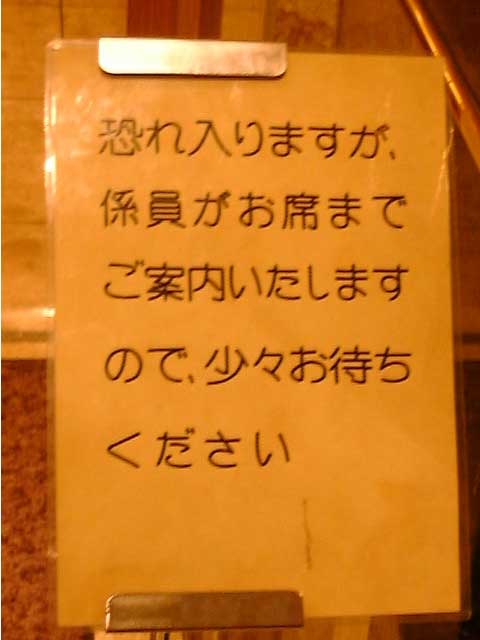 恐れ入りますが、
係員がお席まで
ご案内いたします
ので、少々お待ち
ください